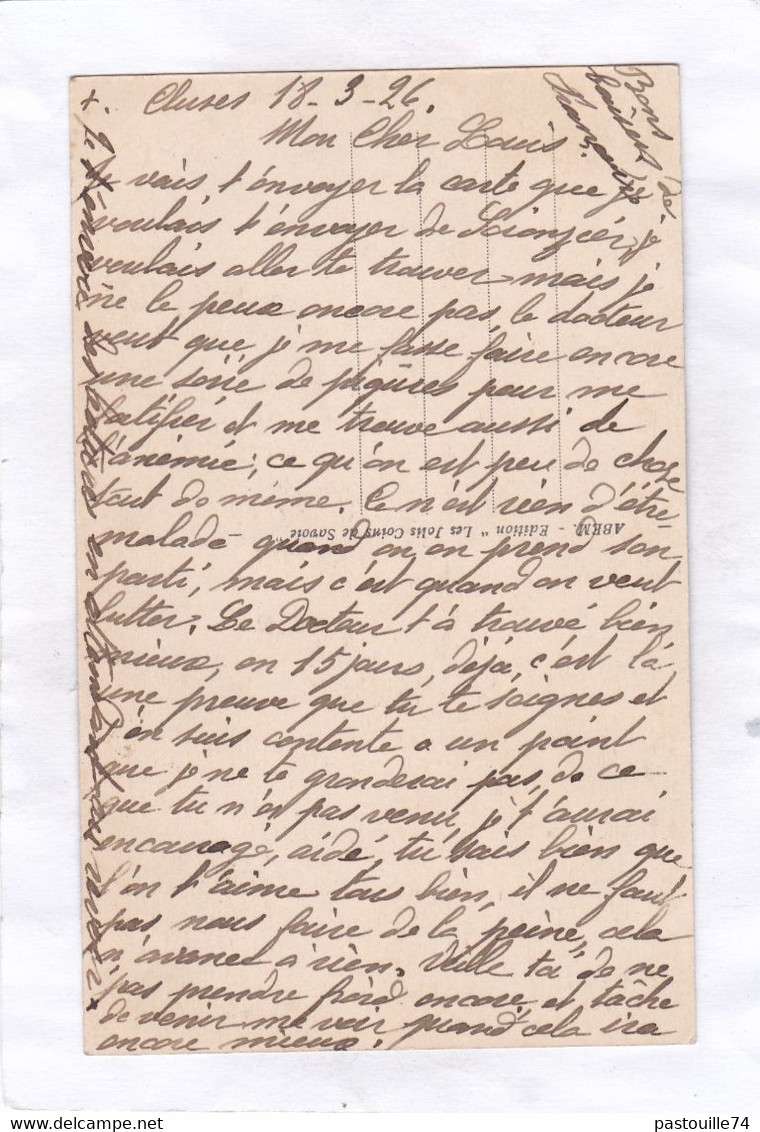 Cluses 18-3-26.
Mon Cher Louis
Je vais t'envoyer la carte que je
voulais t'envoyer de Scionzier, je
voulais aller te trouver mais je
ne le peux encore pas le docteur
veut que je me fasse faire encore
une série de piqûres pour me
fortifier et me trouve aussi de
l'anémie, ce qu'on est peu de chose
tout de même. Ce n'est rien d'être
malade quand on en prend son
parti, mais c'est quand on veut
lutter. Le Docteur t'a trouvé bien
mieux, en 15 jours, déjà, c'est là
une preuve que tu te soignes et
j'en suis contente a un point
que je ne te gronderai pas, de ce
que tu n'es pas venu, je t'aurai
encouragé, aidé, tu sais bien que
l'on t'aime tous bien, il ne faut
pas nous faire de la peine, cela
n'avance a rien. Veille toi de ne
pas prendre froid encore, et tâche
de venir me voir quand cela ira
encore mieux.
+ je t'envoie des baisers en attendant au revoir +
Bons
baisers de
Françoise
ABEM. - Edition "Les Jolis Coins de Savoie"
pastouille74